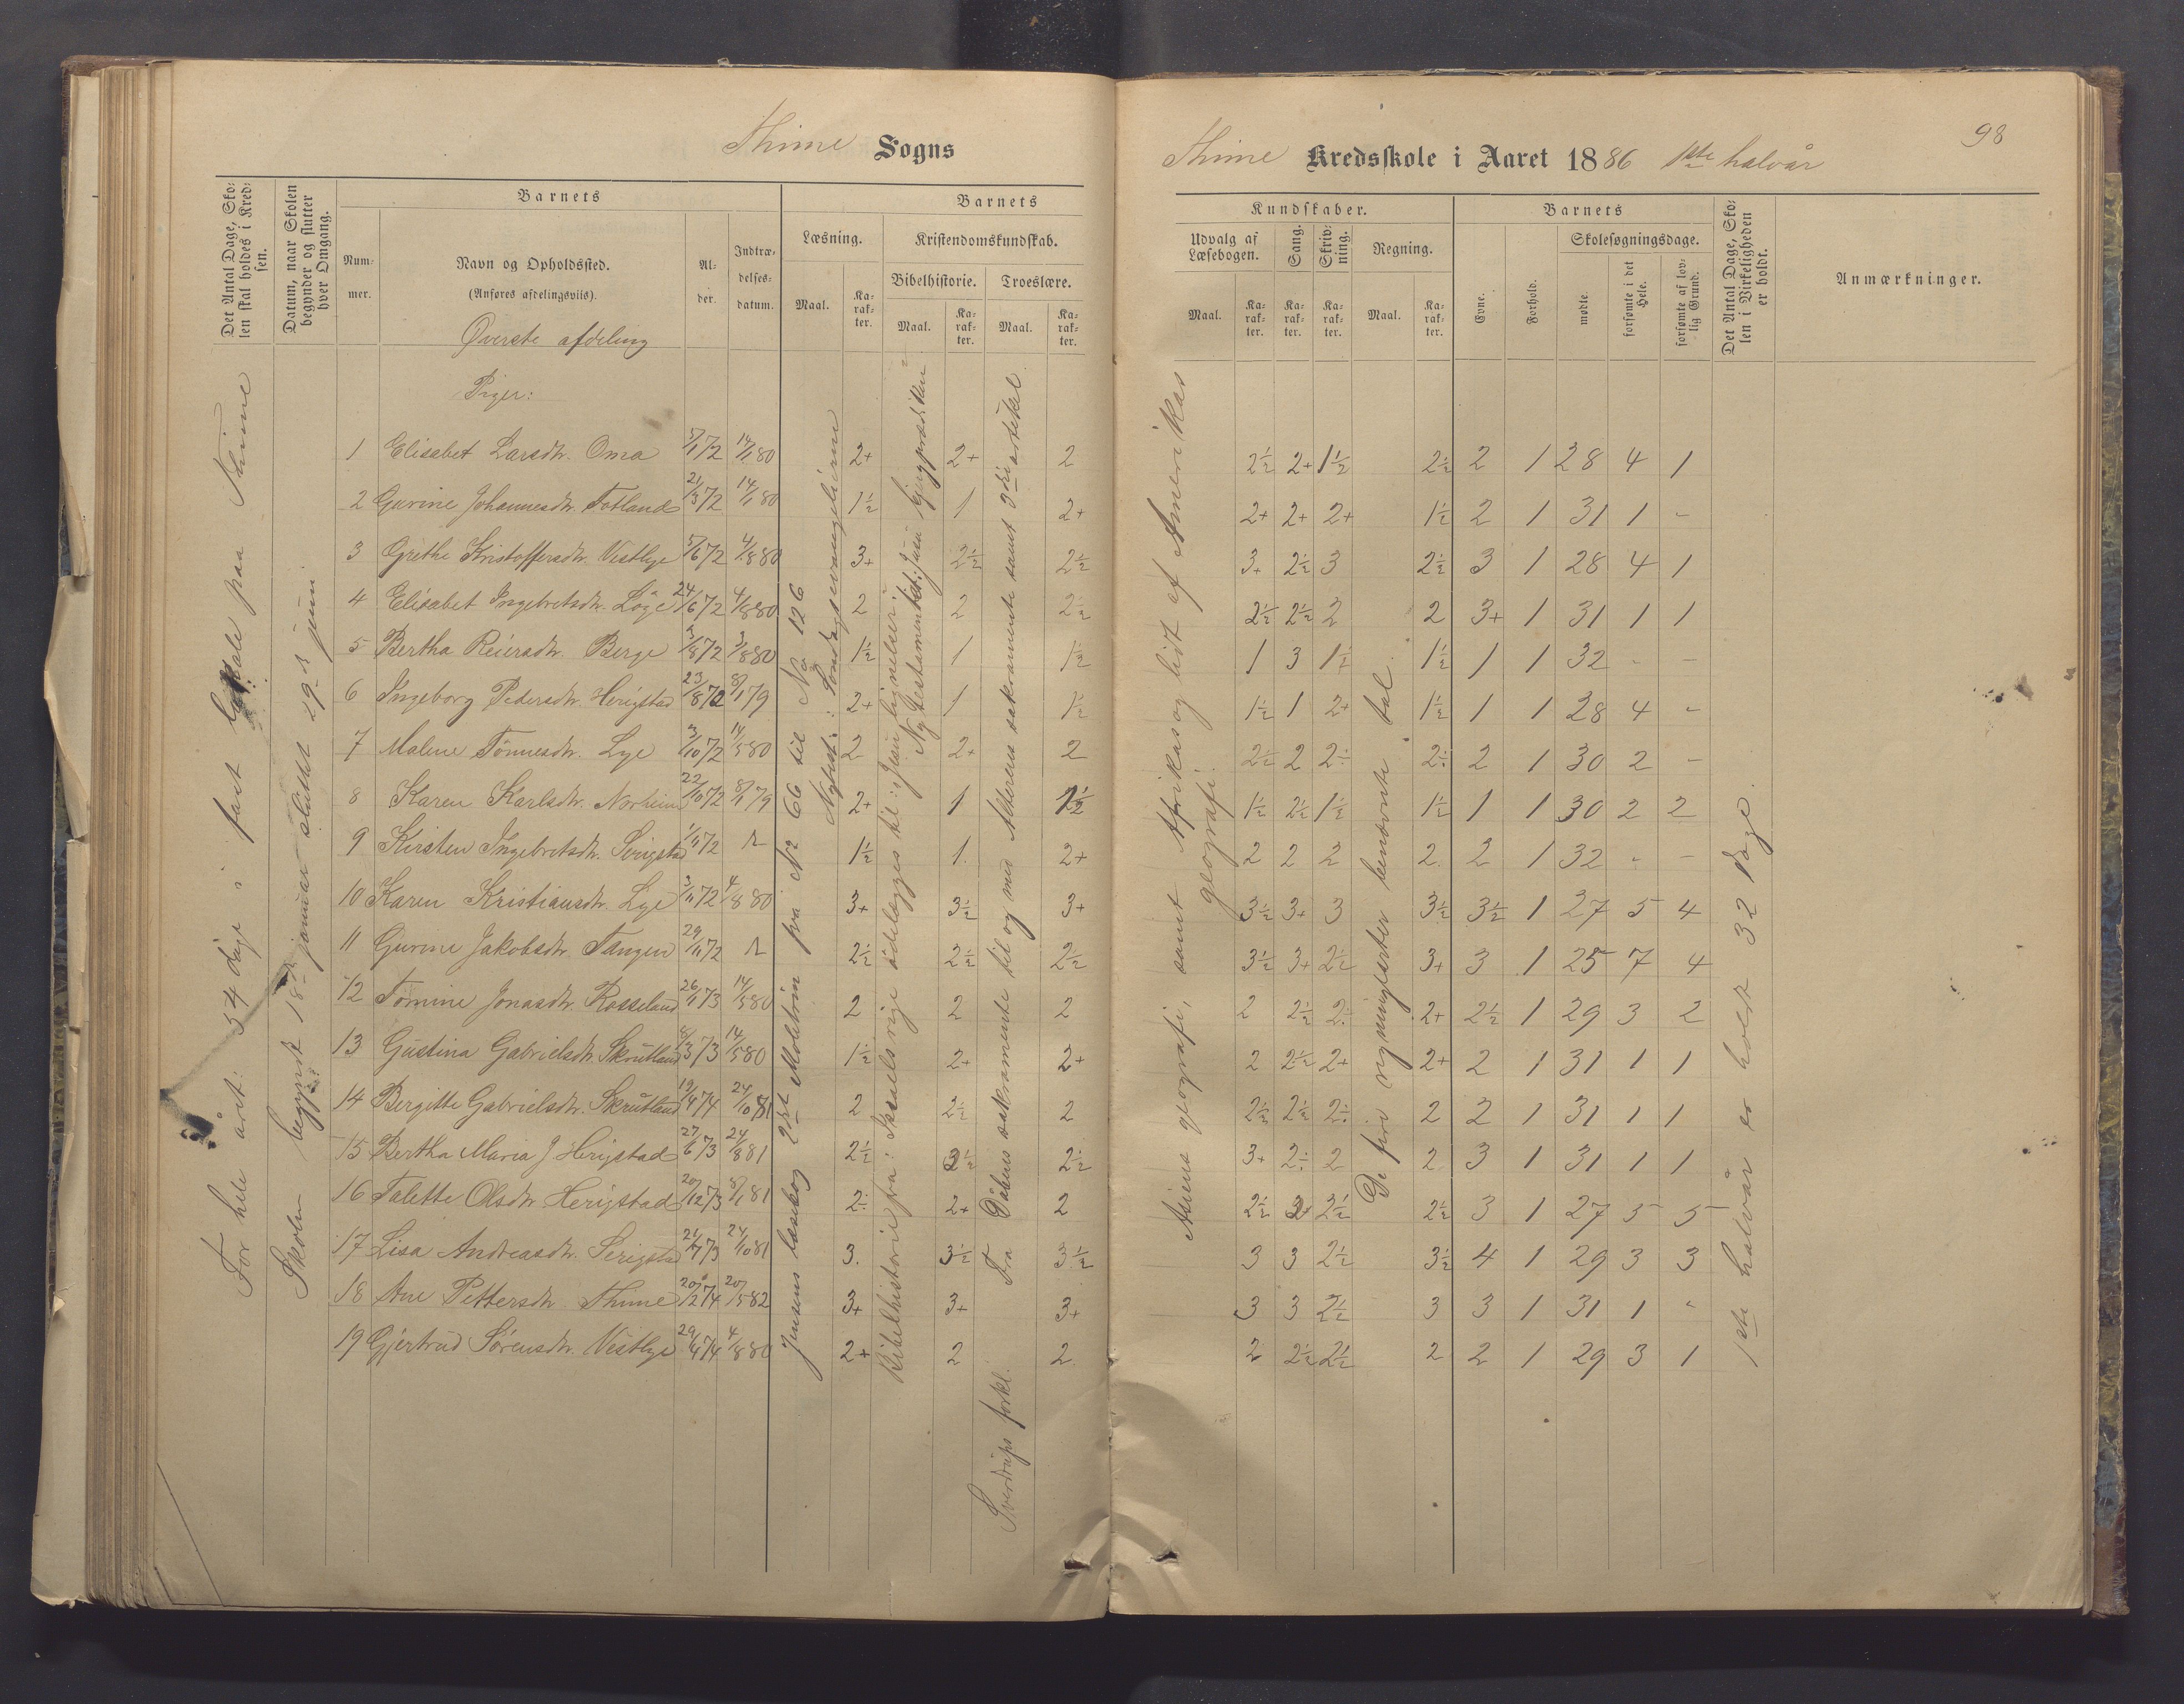 Thime Sogns
Det Antal Dage, Sko-
len skal holdes i Kred-
sen.
Datum, naar Skolen
begynder og slutter
hver Omgang.
Barnets
Num-
mer.
Navn og Opholdssted.
(Anføres afdelingsviis).
Al-
der.
Indtræ-
delses-
datum.
Barnets
Læsning.
Maal.
Ka-
rak-
ter.
Kristendomskundskab.
Bibelhistorie.
Maal.
Ka-
rak-
ter.
Troeslære.
Maal.
Ka-
rak-
ter.
Øverste afdeling
Piger:
1 Elisabet Larsdtr. Oma 5/1 72 14/1 80 2+ 2+ 2
2 Gurine Johannesdtr. Fotland 21/3 72 14/1 80 1½ 1 2+
3 Grethe Kristoffersdtr. Vestlye 5/6 72 4/8 80 3+ 2½ 2½
4 Elisabet Ingebretsdtr. Løge 24/6 72 4/8 80 2 2 2½
5 Bertha Reiersdtr. Berge 3/8 72 3/8 80 1½ 1 1½
6 Ingeborg Pedersdtr. Herigstad 23/8 72 8/1 79 2+ 1 1½
7 Malene Tønnesdtr. Lye 3/10 72 14/5 80 2 2+ 2
8 Karen Karlsdtr. Norheim 22/10 72 8/1 79 2+ 1 1½
9 Kirsten Ingebretsdtr. Serigstad 1/11 72 1½ 1 2+
10 Karen Kristiansdtr. Lye 3/11 72 4/8 80 3+ 3½ 3+
11 Gurine Jakobsdtr. Tangen 29/11 72 2½ 2½ 2½
12 Tomine Jonasdtr. Rosseland 26/1 73 14/5 80 2 2 2
13 Gustina Gabrielsdtr. Skrutland 8/3 73 14/5 80 1½ 2+ 2+
14 Bergitte Gabrielsdtr. Skrutland 19/4 74 24/10 81 2 2½ 2
15 Bertha Maria J Herigstad 27/6 73 24/8 81 2½ 2½ 2½
16 Talette Olsdtr. Herigstad 20/12 73 8/1 81 2÷ 2+ 2
17 Lisa Andreasdtr. Serigstad 21/7 73 24/10 81 3. 3½ 3½
18 Ane Pettersdtr Thime 20/2 74 20/5 82 3+ 3+ 3+
19 Gjertrud Sörensdtr. Vestlye 29/4 74 4/8 80 2+ 2 2.
For hele året: 54 dage i fast lokale paa Thime
Skolen begyndt 18de januar sluttet 29de juni
Jensens læsebog 2det Molstrin fra No 66 til No 126
Nytest: Søndagsevangelierne
Bibelhistorie fra: Israels rige ødelægges til: Jesu lignelser:
Ny testamentet: Jesu bjergprædiken
Fra Dåbens sakramente til og med Alterens sakramente samt 3die artikel
Sverdrups forkl.
Thime Kredsskole i Aaret 1886 1ste halvår
98
Kundskaber.
Udvalg af
Læsebogen.
Maal.
Ka-
rak-
ter.
Sang.
Ka-
rak-
ter.
Skriv-
ning.
Ka-
rak-
ter.
Regning.
Maal.
Ka-
rak-
ter.
Barnets
Evne.
Forhold.
Skolesøgningsdage.
mødte.
forsømte i det
Hele.
forsømte af lov-
lig Grund.
Det Antal Dage, Sko-
len i Virkeligheden
er holdt.
Anmærkninger.
2½ 2+ 1½ 2½ 2 1 28 4 1
2+ 2+ 2+ 1½ 2 1 31 1 -
3+ 2½ 3 2½ 3 1 28 4 1
2½ 2½ 2 2 3+ 1 31 1 1
1 3 1½ 1½ 1 1 32 - -
1½ 1 2+ 1½ 1 1 28 4 -
2½ 2 2÷ 2÷ 2 1 30 2 -
1½ 2½ 1½ 1½ 1 1 30 2 2
2 2 2 2. 2 1 32 - -
3½ 3+ 3 3½ 3½ 1 27 5 4
3½ 3+ 2½ 3+ 3 1 25 7 4
2 2½ 2÷ 2+ 2½ 1 29 3 2
2 2½ 2+ 2+ 2 1 31 1 1
2½ 2½ 2÷ 2 2 1 31 1 1
3+ 2÷ 2 2 3 1 31 1 1
2½ 2+ 2½ 2½ 3 1 27 5 5
3 3 2½ 3½ 4 1 29 3 3
3 3 2½ 3 3 1 31 1 -
2 2½ 2½ 2 2 1 29 3 1
Asiens geografi, samt Afrikas og lidt af Amerikas
geografi.
De fire regningsarter benævnte tal.
1ste halvår er holdt 32 dage.